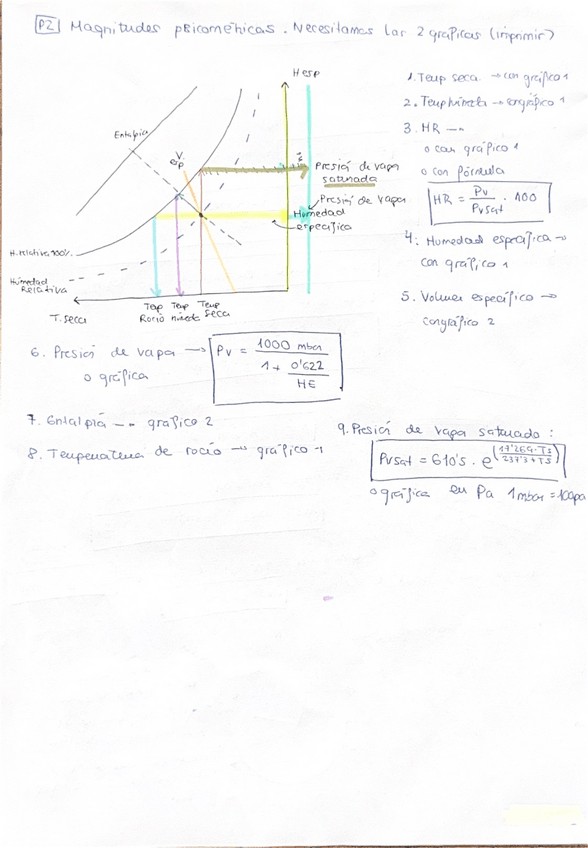 P2 Magnitudes psicometricas. Necesitamos las 2 gráficas (imprimir)
H esp
Entalpia
V.
esp
Presión de vapor
saturada
Presión de vapor
Humedad
específica
H. relativa 100%.
Humedad
Relativa
T. seca
Temp
Rocio
Temp
Temp
seca
1. Temp seca → con gráfico 1
2. Temp húmeda → con gráfico 1
3. HR →
o con gráfico 1
o con fórmula
HR = Pv / Pvsat · 100
4. Humedad específica →
con gráfico 1
5. Volumen específico →
con gráfico 2
6. Presión de vapor → Pv = 1000 mbar / 1 + 0'622 / HE
o gráfica
7. Entalpía → grafico 2
8. Temperatura de rocío → gráfico 1
9. Presión de vapor saturado:
Pvsat = 610'5 · e^(17'269·Ts / 237'3+Ts)
o gráfica en Pa 1mbar = 100pa